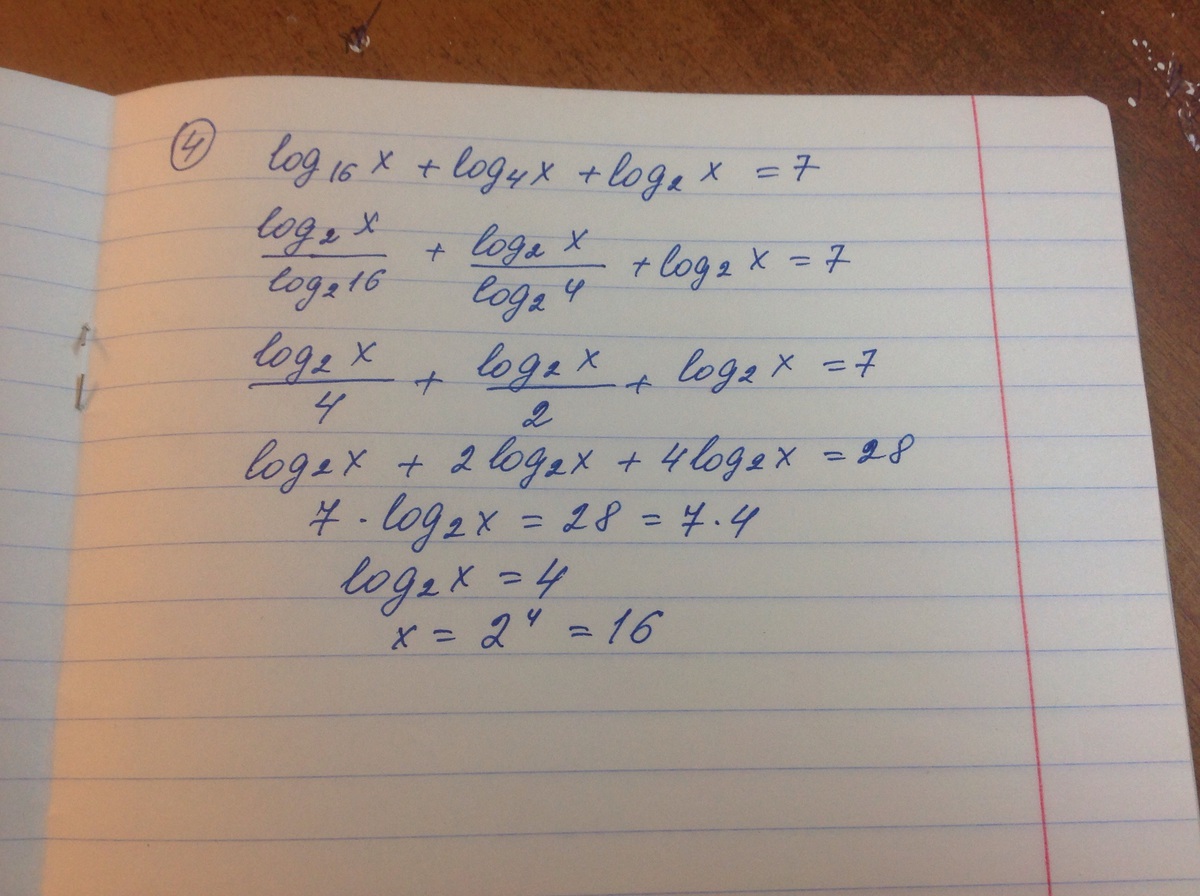 ④ log₁₆ x + log₄ x + log₂ x = 7
log₂ x / log₂ 16 + log₂ x / log₂ 4 + log₂ x = 7
log₂ x / 4 + log₂ x / 2 + log₂ x = 7
log₂ x + 2 log₂ x + 4 log₂ x = 28
7 · log₂ x = 28 = 7 · 4
log₂ x = 4
x = 2⁴ = 16